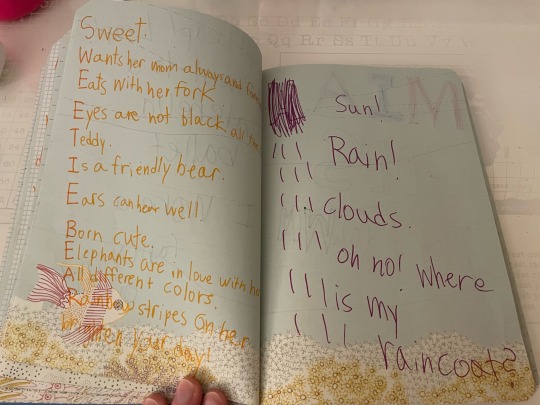 Sweet.
Wants her mom always and
Eats with her fork
Eyes are not black all the
Teddy.
Is a friendly bear.
Ears can hear well.
Born cute.
Elephants are in love with
All different colors.
Rainbow stripes on her
brighten your day!
Sun!
Rain!
clouds.
oh no! Where
is my
raincoat?